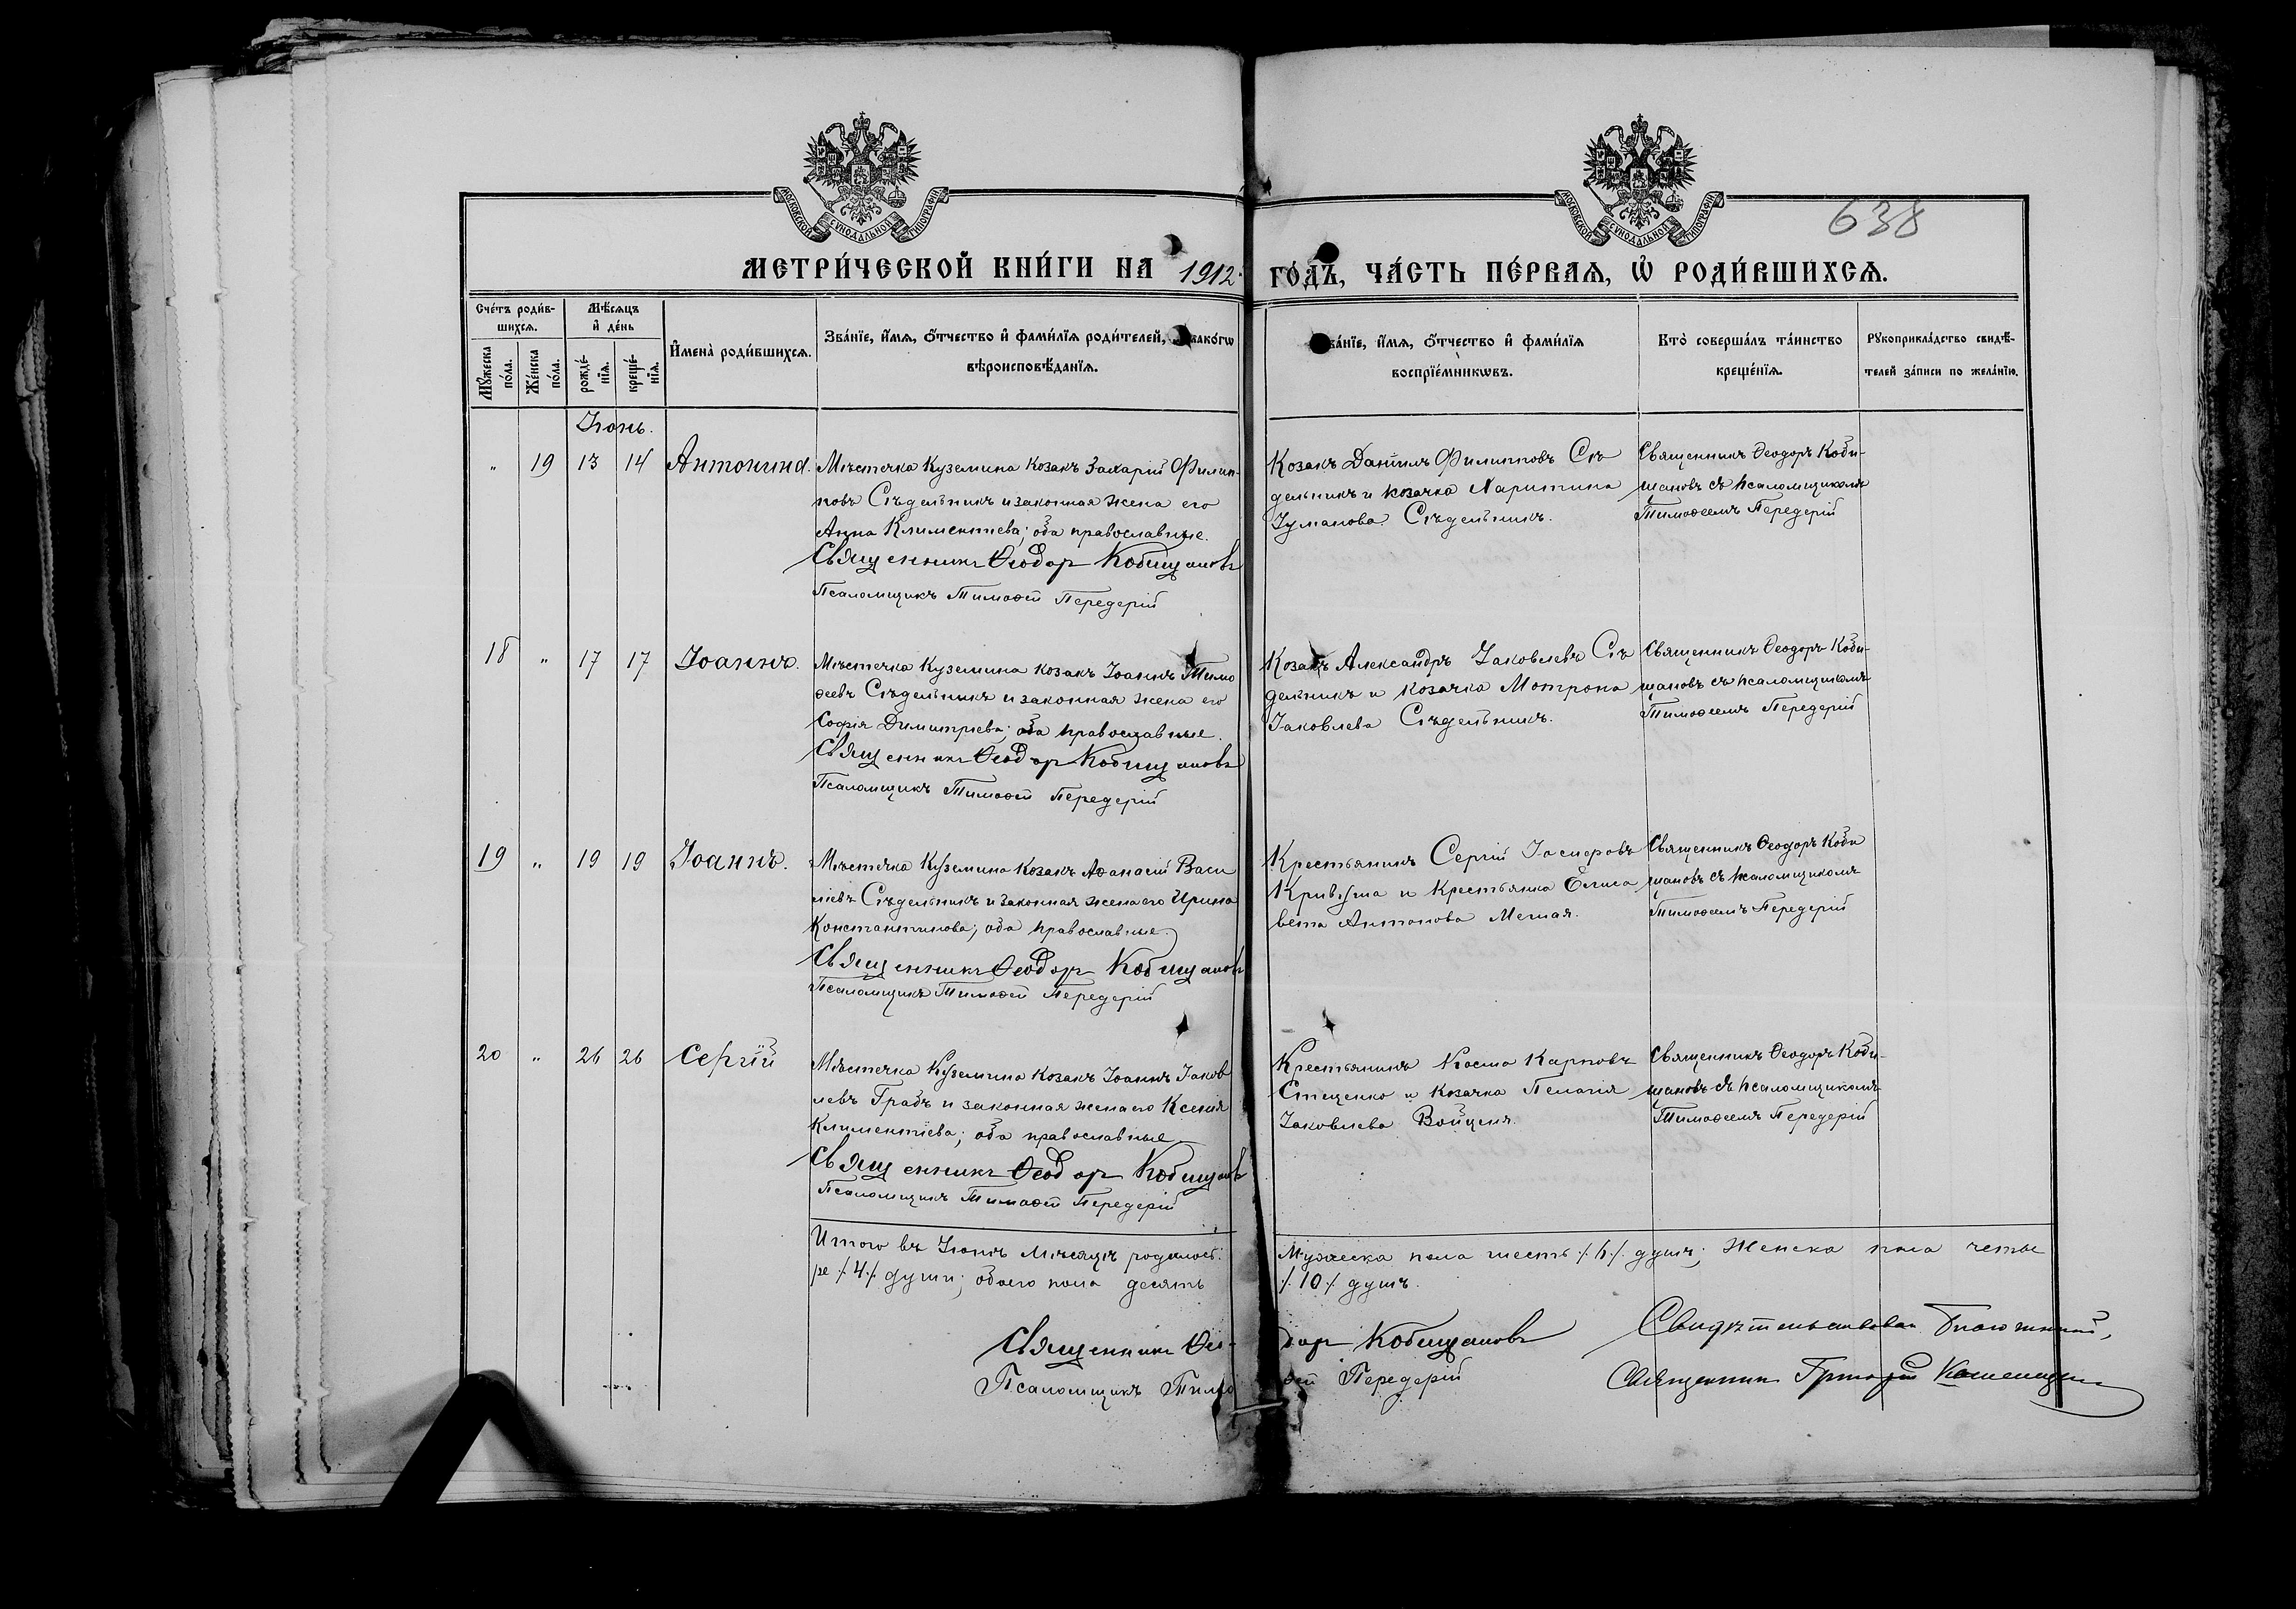 638
МОСКОВСКОЙ СѴНОДАЛЬНОЙ ТИПОГРАФІИ
МОСКОВСКОЙ СѴНОДАЛЬНОЙ ТИПОГРАФІИ
МЕТРИ́ЧЕСКОЙ КНИ́ГИ НА 1912 ГО́ДЪ, ЧА́СТЬ ПЕ́РВАЯ, Ѡ҆ РОДИ́ВШИХСЯ.
Сче́тъ роди́в-
шихся.
Мѣ́сяцъ
и҆ де́нь
Мꙋ́жеска по́ла.
Же́нска по́ла.
рожде́-
нїя.
креще́-
нїя.
И҆мена̀ роди́вшихся.
Зва́нїе, и҆́мя, ѻ҆́тчество и҆ фами́лїя роди́телей,
вѣроисповѣ́данїя.
зва́нїе, и҆́мя, ѻ҆́тчество и҆ фами́лїя
воспрїе́мникѡвъ.
Кто̀ соверша́лъ та́инство
креще́нїя.
Рꙋкоприкла́дство свидѣ́-
телей за́писи по жела́нїю.
Іюнь.
" 19 13 14 Антонина.
Мѣстечка Куземина козакъ Захарій Филип-
повъ Сѣдельникъ и законная жена его
Анна Климентіева; оба православные.
Священникъ Ѳеодоръ Кобищановъ
Псаломщикъ Тимоѳей Передерій
Козакъ Даніилъ Филипповъ Сѣ
дельникъ и козачка Харитина
Сѣдельникъ.
Священникъ Ѳеодоръ Коби-
щановъ съ псаломщикомъ
Тимоѳеемъ Передерій
18 " 17 17 Іоаннъ.
Мѣстечка Куземина козакъ Іоаннъ Тимо
ѳеевъ Сѣдельникъ и законная жена его
Софія Димитріева; оба православные.
Священникъ Ѳеодоръ Кобищановъ
Псаломщикъ Тимоѳей Передерій
Козакъ Александръ Іаковлевъ Сѣ
дельникъ и козачка Мотрона
Іаковлева Сѣдельникъ.
Священникъ Ѳеодоръ Коби-
щановъ съ псаломщикомъ
Тимоѳеемъ Передерій
19 " 19 19 Іоаннъ.
Мѣстечка Куземина козакъ Аѳанасій Васи
ліевъ Сѣдельникъ и законная жена его Ирина
Константинова; оба православные.
Священникъ Ѳеодоръ Кобищановъ
Псаломщикъ Тимоѳей Передерій
Крестьянинъ Сергій Іосифовъ
и крестьянка Елиса
вета Антонова
Священникъ Ѳеодоръ Коби
щановъ съ псаломщикомъ
Тимоѳеемъ Передерій
20 " 26 26 Сергій
Мѣстечка Куземина козакъ Іоаннъ Іаков
левъ Грабъ и законная жена его Ксенія
Климентіева; оба православные.
Священникъ Ѳеодоръ Кобищановъ
Псаломщикъ Тимоѳей Передерій
Крестьянинъ Косма Карповъ
Стеценко и козачка Пелагія
Іаковлева
Священникъ Ѳеодоръ Коби-
щановъ съ псаломщикомъ
Тимоѳеемъ Передерій
Итого въ Іюнѣ мѣсяцѣ родилось: Мужеска пола шесть /.6./ душъ; Женска пола четы
ре /.4./ души; обоего пола десять /.10./ душъ.
Священникъ Ѳеодоръ Кобищановъ
Псаломщикъ Тимоѳей Передерій
Свидѣтельствовалъ Благочинный,
Священникъ Григорій